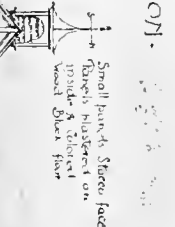 ON.
Small panels Stucco face
Panels plastered on
inside & colored
Wood Black flair